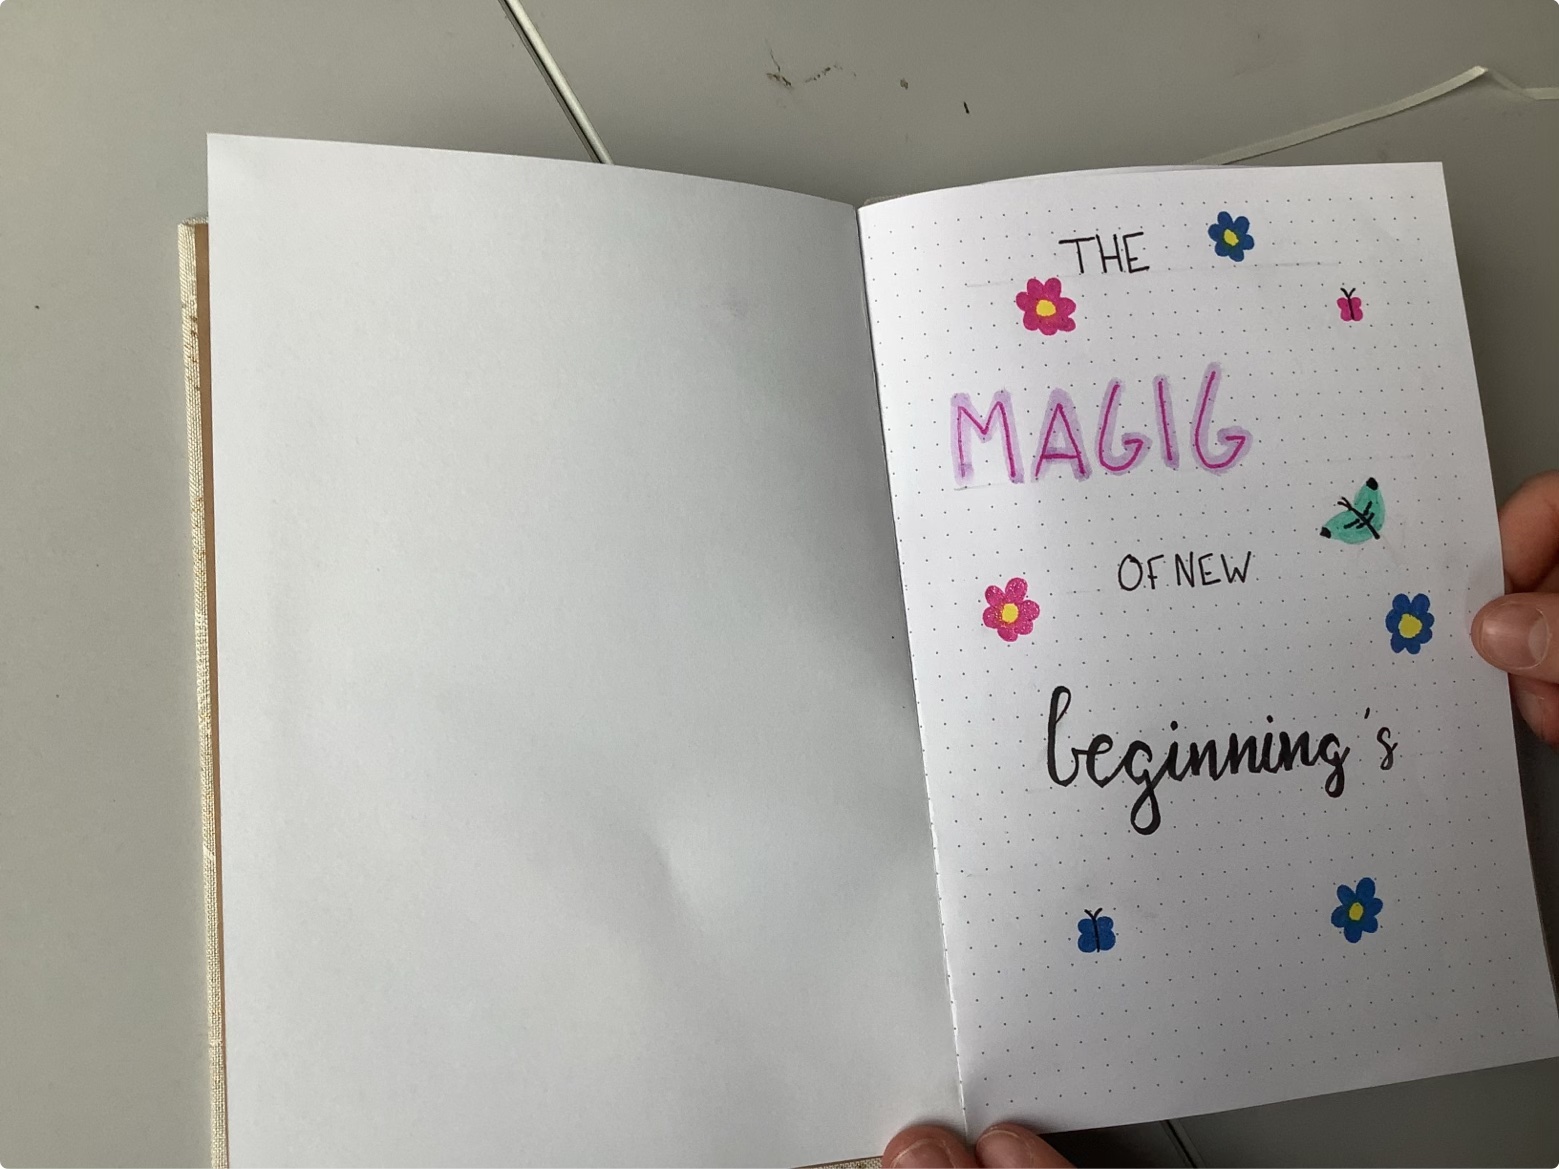 THE
MAGIG
OF NEW
beginning's